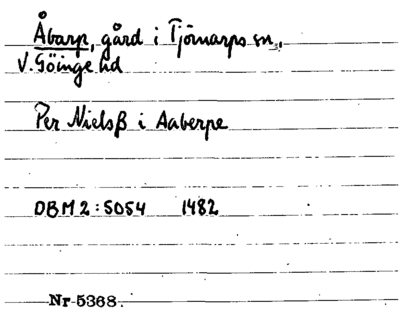 Åbarp, gård i Tjörnarps sn.,
V. Göinge hd
Per Nielsß i Aaberpe
DBM 2:5054 1482
Nr 5368.